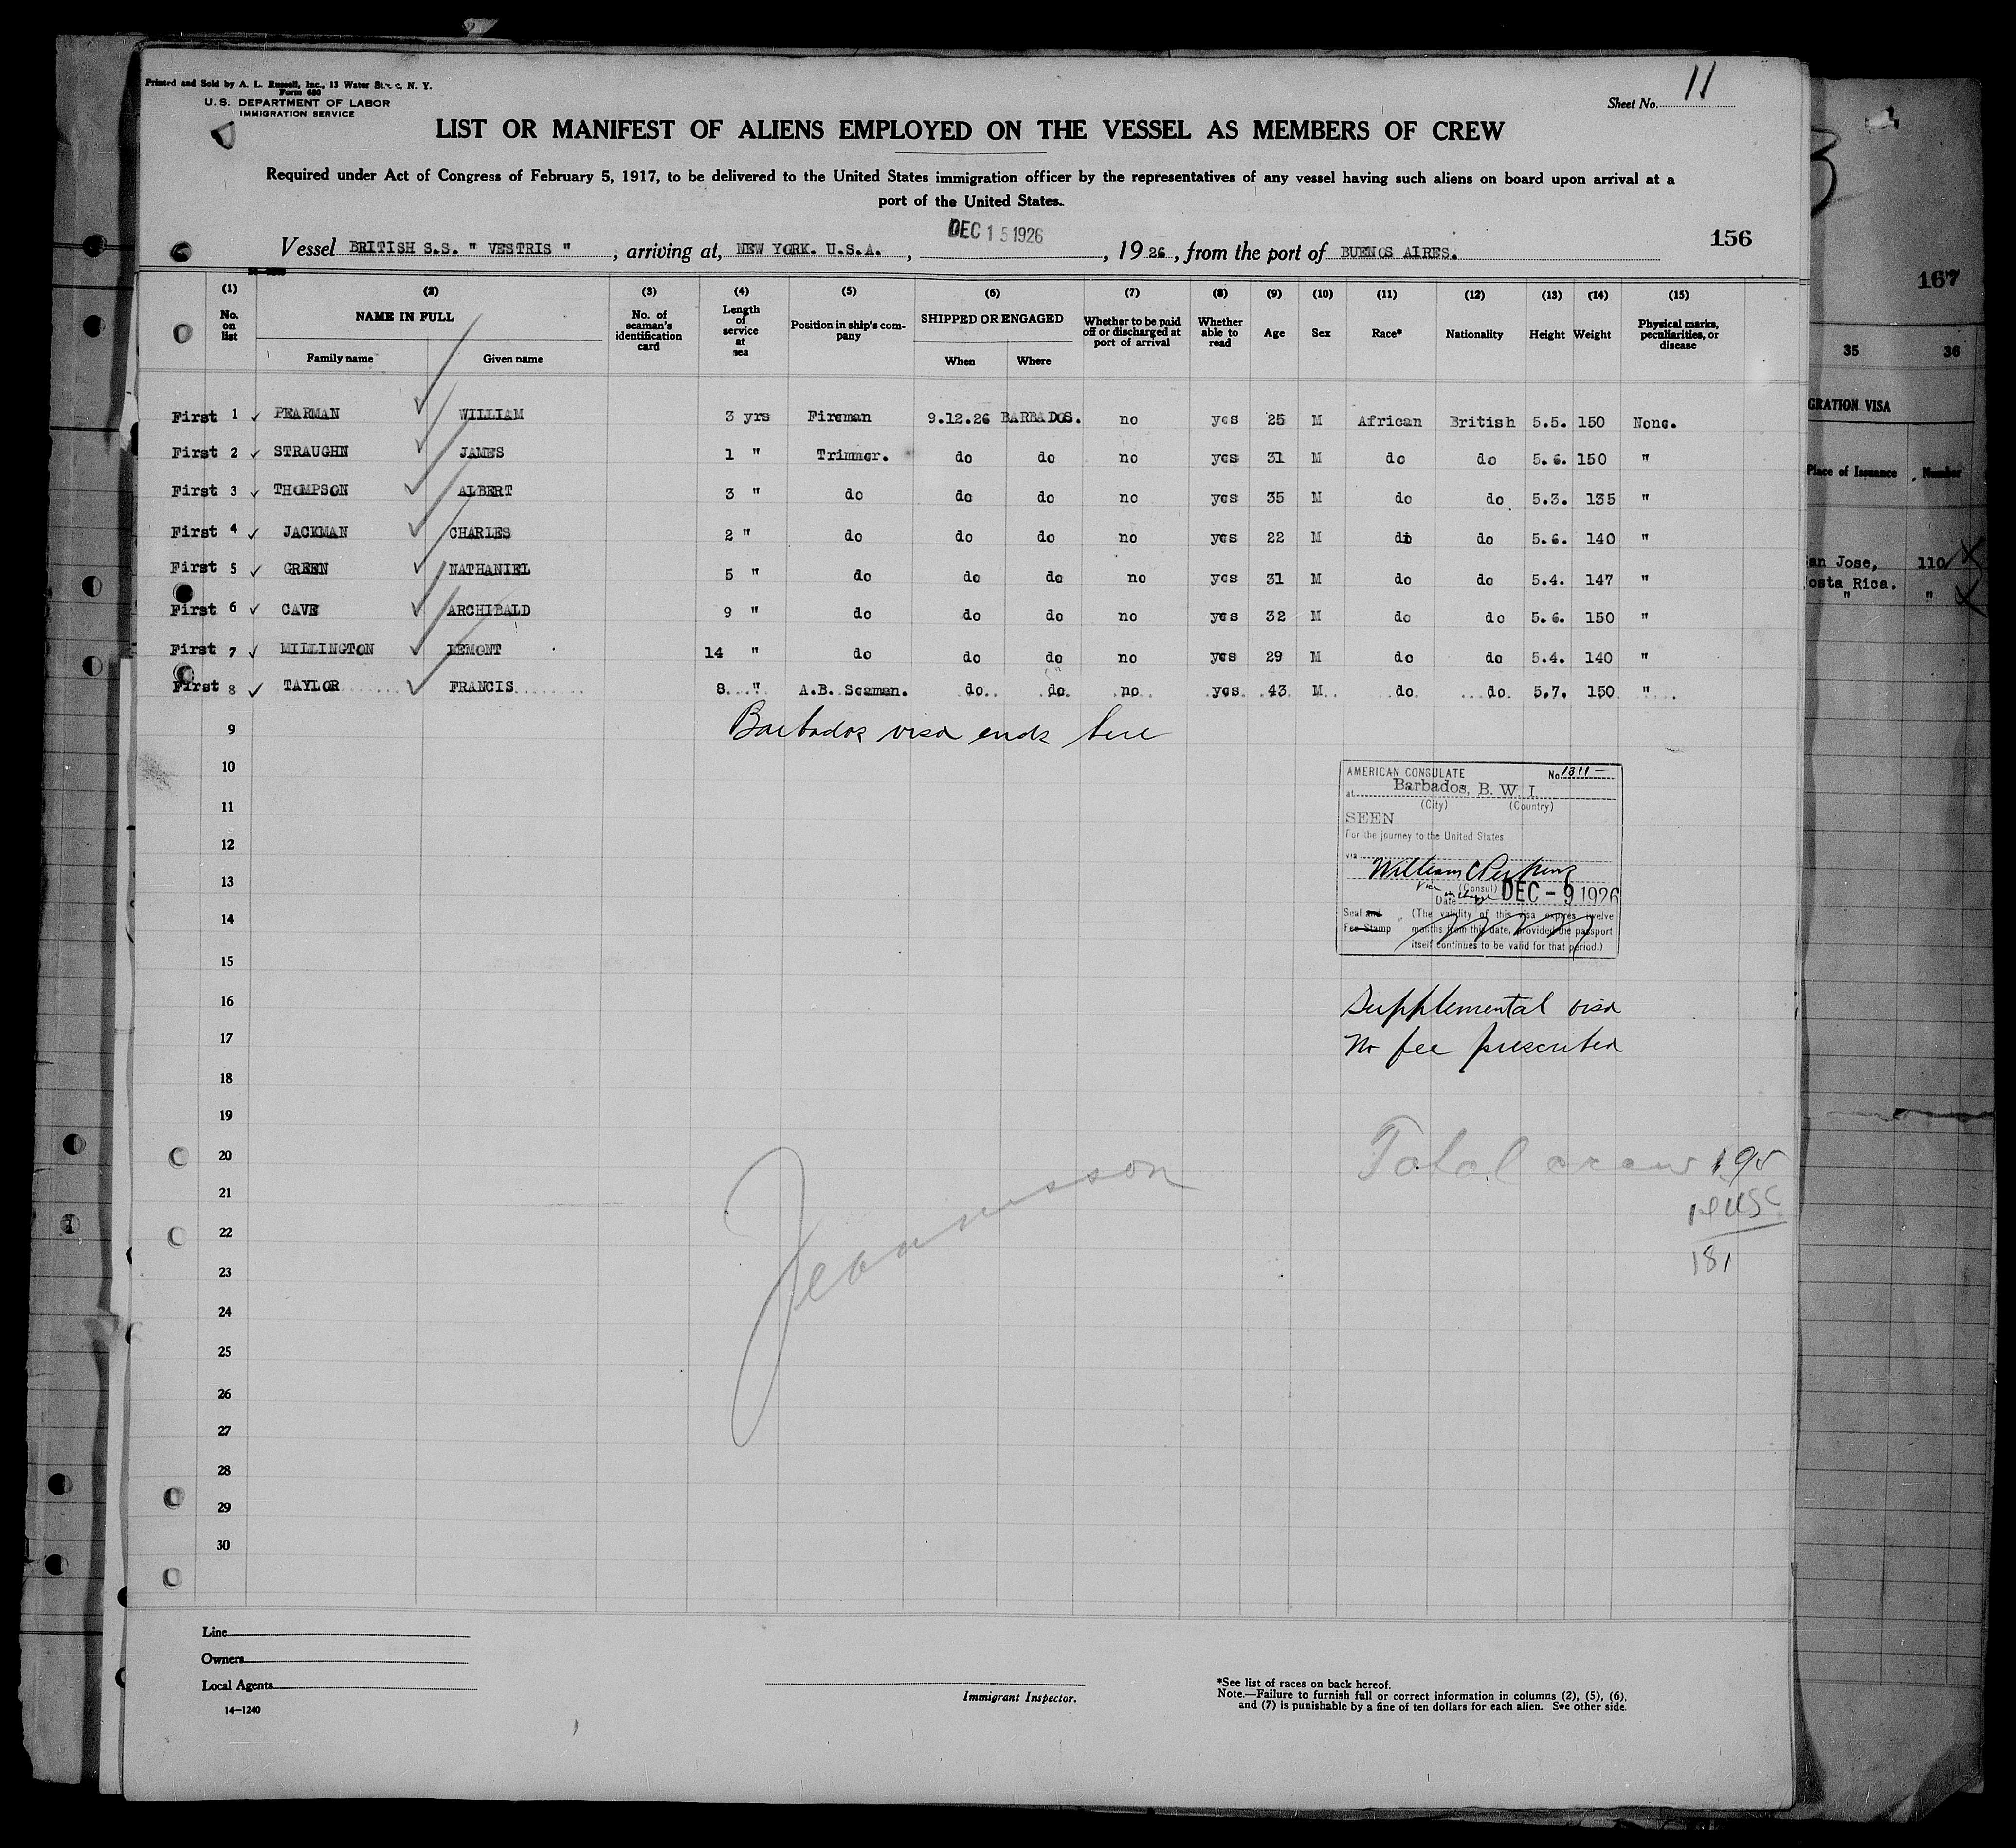 Printed and Sold by A. L. Russell, Inc., 13 Water Street, N. Y.
Form 680
U. S. DEPARTMENT OF LABOR
IMMIGRATION SERVICE
Sheet No. 11
LIST OR MANIFEST OF ALIENS EMPLOYED ON THE VESSEL AS MEMBERS OF CREW
Required under Act of Congress of February 5, 1917, to be delivered to the United States immigration officer by the representatives of any vessel having such aliens on board upon arrival at a
port of the United States.
Vessel BRITISH S.S. " VESTRIS " , arriving at, NEW YORK. U.S.A. , DEC 15 1926 , 1926 , from the port of BUENOS AIRES.
156
(1) (2) (3) (4) (5) (6) (7) (8) (9) (10) (11) (12) (13) (14) (15)
No. on list NAME IN FULL Family name Given name No. of seaman's identification card Length of service at sea Position in ship's company SHIPPED OR ENGAGED When Where Whether to be paid off or discharged at port of arrival Whether able to read Age Sex Race* Nationality Height Weight Physical marks, peculiarities, or disease
First 1 ✓ PEARMAN ✓ WILLIAM 3 yrs Fireman 9.12.26 BARBADOS. no yes 25 M African British 5.5. 150 None.
First 2 ✓ STRAUGHN ✓ JAMES 1 " Trimmer. do do no yes 31 M do do 5.6. 150 "
First 3 ✓ THOMPSON ✓ ALBERT 3 " do do do no yes 35 M do do 5.3. 135 "
First 4 ✓ JACKMAN ✓ CHARLES 2 " do do do no yes 22 M do do 5.6. 140 "
First 5 ✓ GREEN ✓ NATHANIEL 5 " do do do no yes 31 M do do 5.4. 147 "
First 6 ✓ CAVE ✓ ARCHIBALD 9 " do do do no yes 32 M do do 5.6. 150 "
First 7 ✓ MILLINGTON ✓ LEMONT 14 " do do do no yes 29 M do do 5.4. 140 "
First 8 ✓ TAYLOR ✓ FRANCIS 8 " A.B. Seaman. do do no yes 43 M do do 5.7. 150 "
9 Barbados visa ends here
10
11
12
13
14
15
16
17
18
19
20
21
22
23
24
25
26
27
28
29
30
AMERICAN CONSULATE No. 1311 —
at Barbados, B. W. I.
(City) (Country)
SEEN
For the journey to the United States
via
William C Perkins
Vice (Consul) in charge
Date DEC - 9 1926
Seal and Fee Stamp
(The validity of this visa expires twelve
months from this date, provided the passport
itself continues to be valid for that period.)
Supplemental visa
No fee prescribed
Total crew 195
14 USC
181
Line
Owners
Local Agents
14—1240
Immigrant Inspector.
*See list of races on back hereof.
Note.—Failure to furnish full or correct information in columns (2), (5), (6),
and (7) is punishable by a fine of ten dollars for each alien. See other side.
167
35 36
GRATION VISA
Place of Issuance Number
an Jose, 110
osta Rica.
" "